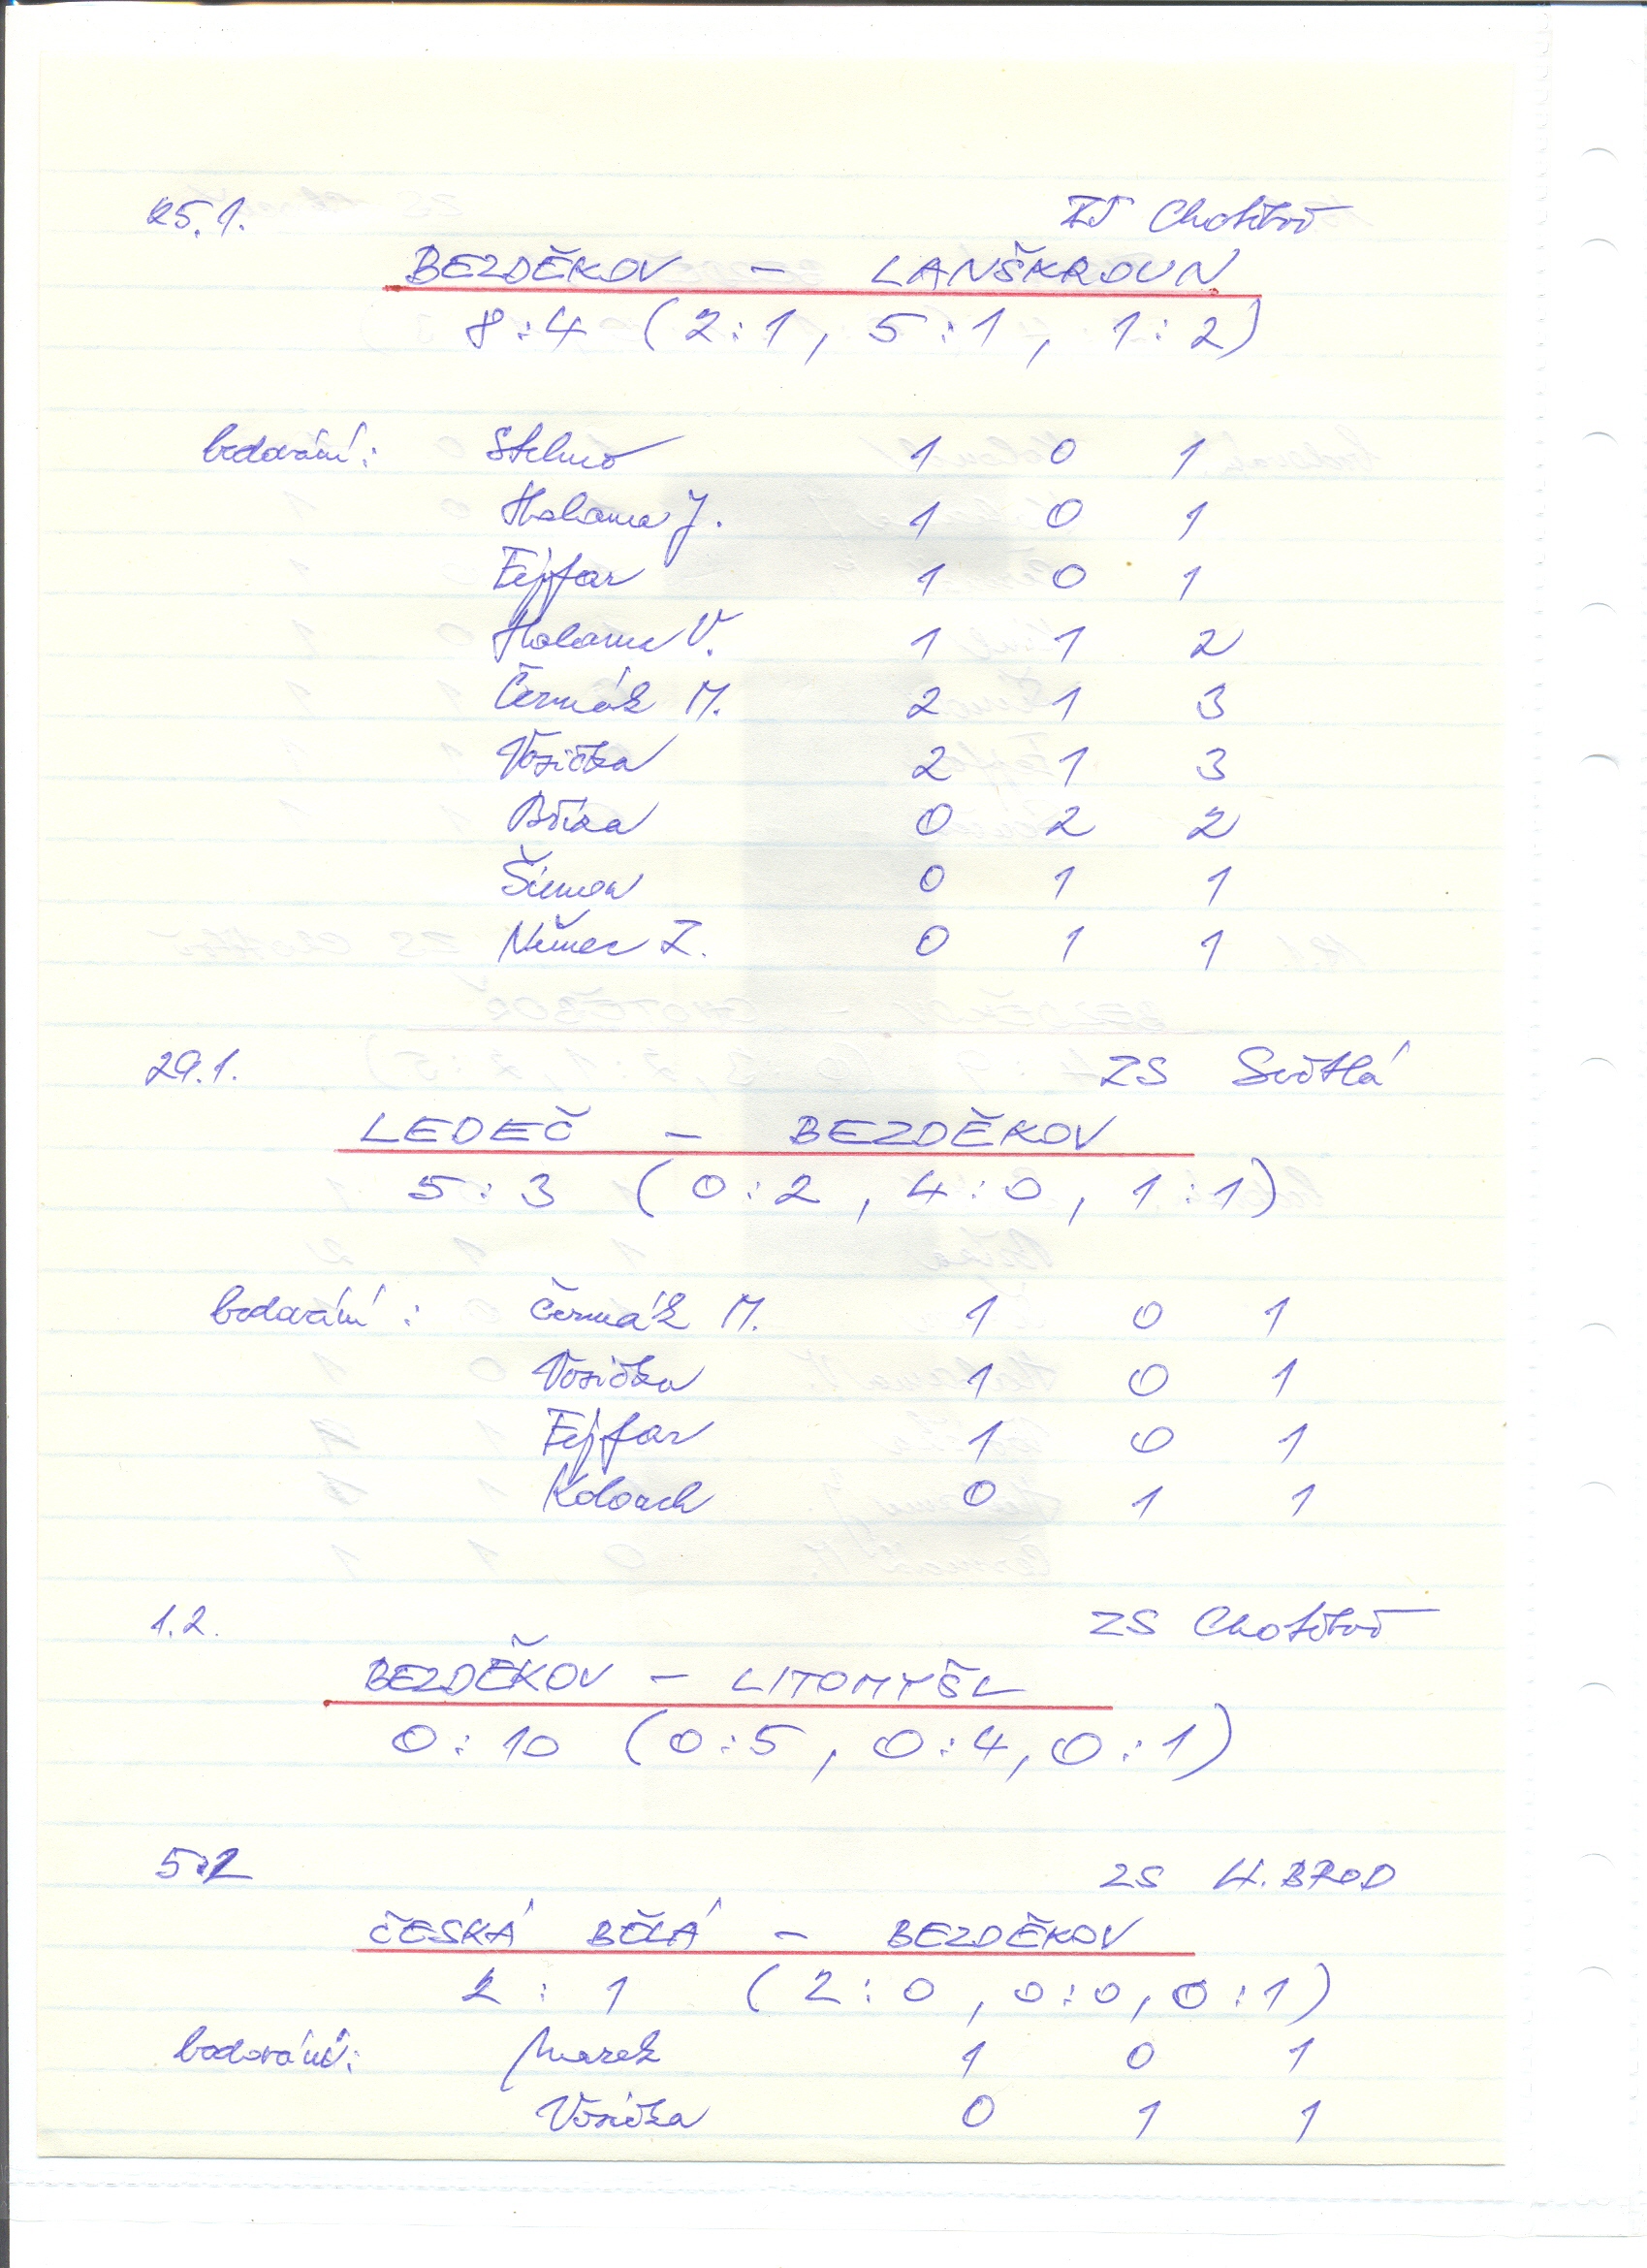 25.1. ZS Chotěboř
BEZDĚKOV - LANŠKROUN
8:4 (2:1, 5:1, 1:2)
bodování: 1 0 1
Halama J. 1 0 1
Fejfar 1 0 1
Halama V. 1 1 2
Čermák M. 2 1 3
Vosička 2 1 3
Bříza 0 2 2
Šimon 0 1 1
Němec Z. 0 1 1
29.1. ZS Světlá
LEDEČ - BEZDĚKOV
5:3 (0:2, 4:0, 1:1)
bodování: Čermák M. 1 0 1
Vosička 1 0 1
Fejfar 1 0 1
0 1 1
1.2. ZS Chotěboř
BEZDĚKOV - LITOMYŠL
0:10 (0:5, 0:4, 0:1)
5.2 ZS H. BROD
ČESKÁ BĚLÁ - BEZDĚKOV
2:1 (2:0, 0:0, 0:1)
bodování: Marek 1 0 1
Vosička 0 1 1